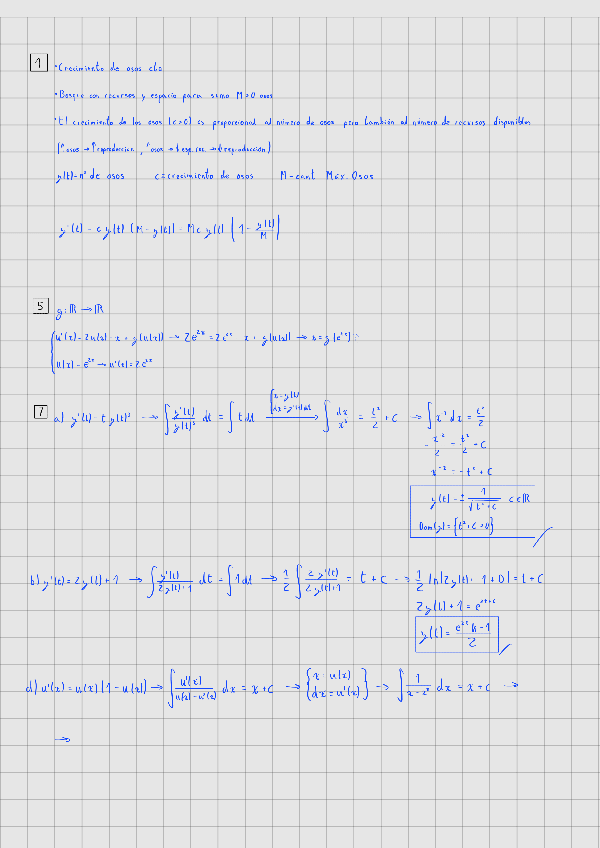 1
• Crecimiento de osos cte
• Bosque con recursos y espacio para sumo M>0 osos
• El crecimiento de los osos (c>0) es proporcional al número de osos pero también al número de recursos disponibles
(↑osos → ↑reproduccion, ↑osos → ↓esp,rec → ↓reproducción)
y(t)=nº de osos c=crecimiento de osos M=cant. Max. Osos
y'(t) = c y(t) (M - y(t)) = Mc y(t) (1 - y(t)/M)
5
g:ℝ→ℝ
u'(x) = 2u(x) x + g(u(x)) → 2e^{2x} = 2e^{2x} x + g(u(x)) → 
u(x) = e^{2x} → u'(x) = 2e^{2x}
7
a) y'(t) = t y(t)³ → ∫ y'(t)/y(t)³ dt = ∫ t dt → {x=y(t) dx=y'(t)dt} ∫ dx/x³ = t²/2 + C → ∫ x⁻³ dx = t²/2
- x⁻²/2 = t²/2 + C
x⁻² = -t² + C
y(t) = ± 1/√(t²+c) c∈ℝ
Dom(y) = {t²+C>0}
b) y'(t) = 2y(t)+1 → ∫ y'(t)/(2y(t)+1) dt = ∫ 1 dt → 1/2 ∫ 2y'(t)/(2y(t)+1) = t + c → 1/2 ln|2y(t)+1+0| = t+C
2y(t)+1 = e^{2t+c}
y(t) = (e^{2t}k-1)/2
d) u'(x) = u(x)(1-u(x)) → ∫ u'(x)/(u(x)-u²(x)) dx = x+c → {x=u(x) dx=u'(x)} → ∫ 1/(x-x²) dx = x+c →
→